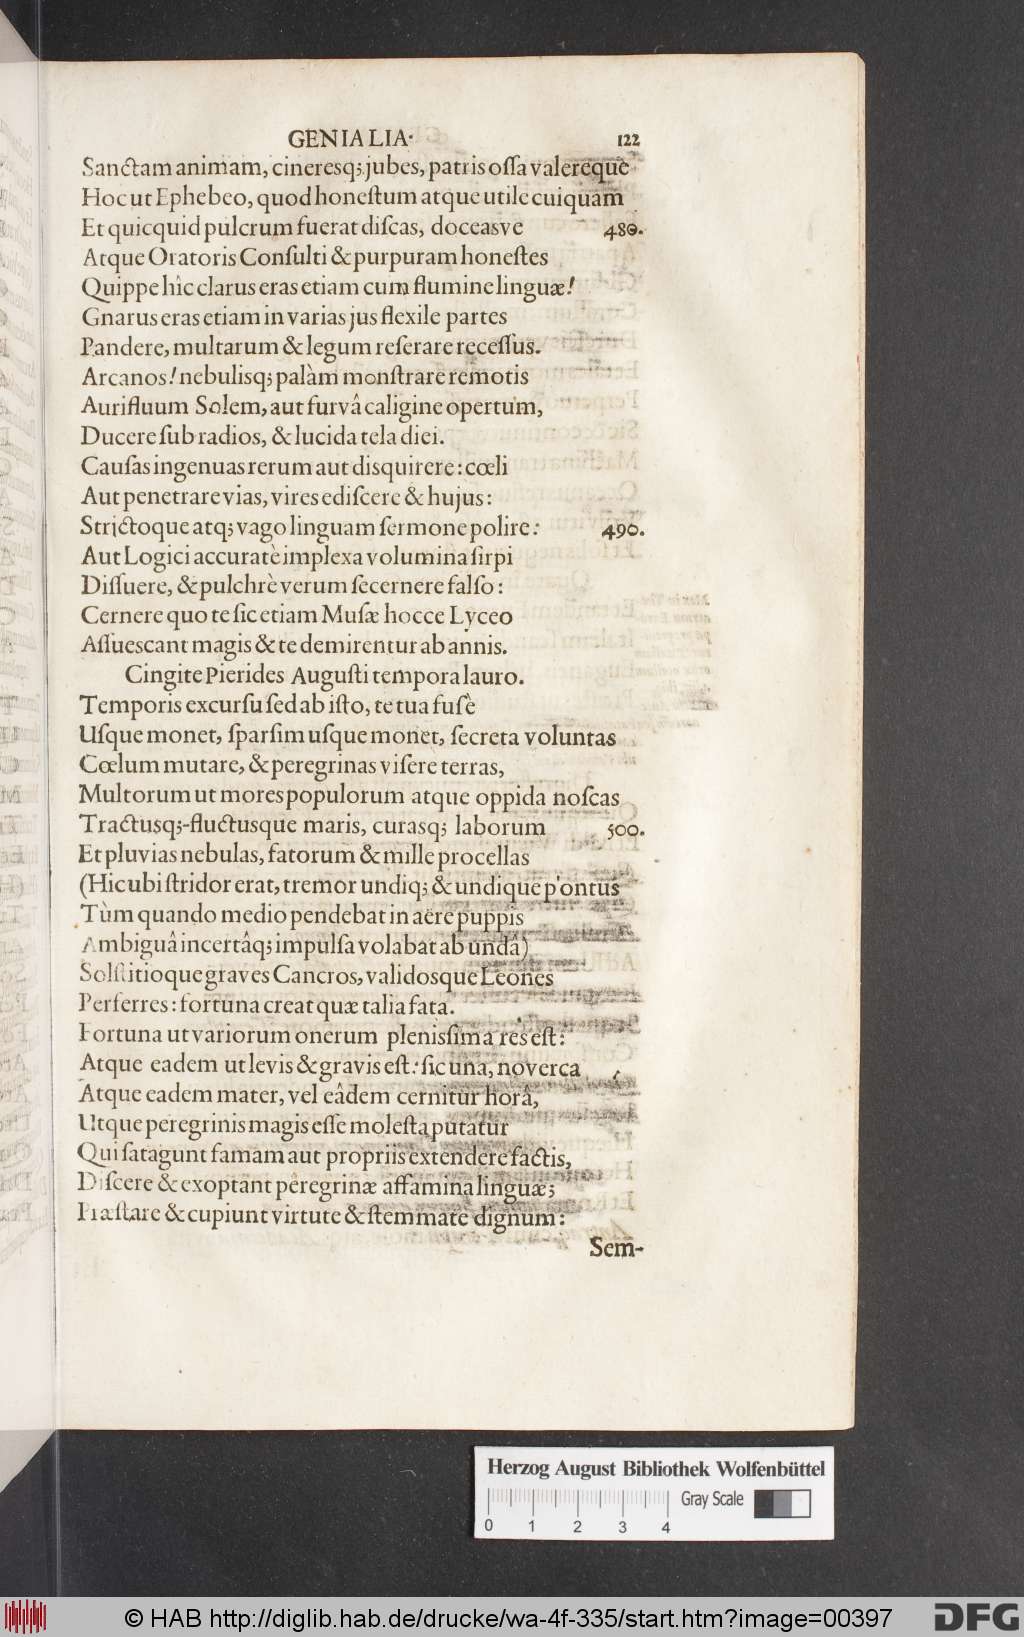 GENIALIA· 122
Sanctam animam, cineresq; jubes, patris oſſa valereque
Hoc ut Ephebeo, quod honeſtum atque utile cuiquam
Et quicquid pulcrum fuerat diſcas, doceasve 480.
Atque Oratoris Conſulti & purpuram honeſtes
Quippe hîc clarus eras etiam cum flumine linguæ!
Gnarus eras etiam in varias jus flexile partes
Pandere, multarum & legum reſerare receſſus.
Arcanos! nebulisq; palàm monſtrare remotis
Aurifluum Solem, aut furvâ caligine opertum,
Ducere ſub radios, & lucida tela diei.
Cauſas ingenuas rerum aut disquirere: cœli
Aut penetrare vias, vires ediſcere & hujus:
Strictoque atq; vago linguam ſermone polire: 490.
Aut Logici accuratè implexa volumina ſirpi
Diſſuere, & pulchrè verum ſecernere falſo:
Cernere quo te ſic etiam Muſæ hocce Lyceo
Aſſueſcant magis & te demirentur ab annis.
Cingite Pierides Auguſti tempora lauro.
Temporis excurſu ſed ab iſto, te tua fuſè
Uſque monet, ſparſim uſque monet, ſecreta voluntas
Cœlum mutare, & peregrinas viſere terras,
Multorum ut mores populorum atque oppida noſcas
Tractusq;-fluctusque maris, curasq; laborum 500.
Et pluvias nebulas, fatorum & mille procellas
(Hic ubi ſtridor erat, tremor undiq; & undique pontus
Tùm quando medio pendebat in aëre puppis
Ambiguâ incertâq; impulſa volabat ab undâ)
Solſtitioque graves Cancros, validosque Leones
Perferres: fortuna creat quæ talia fata.
Fortuna ut variorum onerum pleniſſima res eſt:
Atque eadem ut levis & gravis eſt: ſic una, noverca
Atque eadem mater, vel eâdem cernitur horâ,
Utque peregrinis magis eſſe moleſta putatur
Qui ſatagunt famam aut propriis extendere factis,
Diſcere & exoptant peregrinæ affamina linguæ;
Præſtare & cupiunt virtute & ſtemmate dignum:
Sem-
Herzog August Bibliothek Wolfenbüttel
Gray Scale
0 1 2 3 4
© HAB http://diglib.hab.de/drucke/wa-4f-335/start.htm?image=00397
DFG